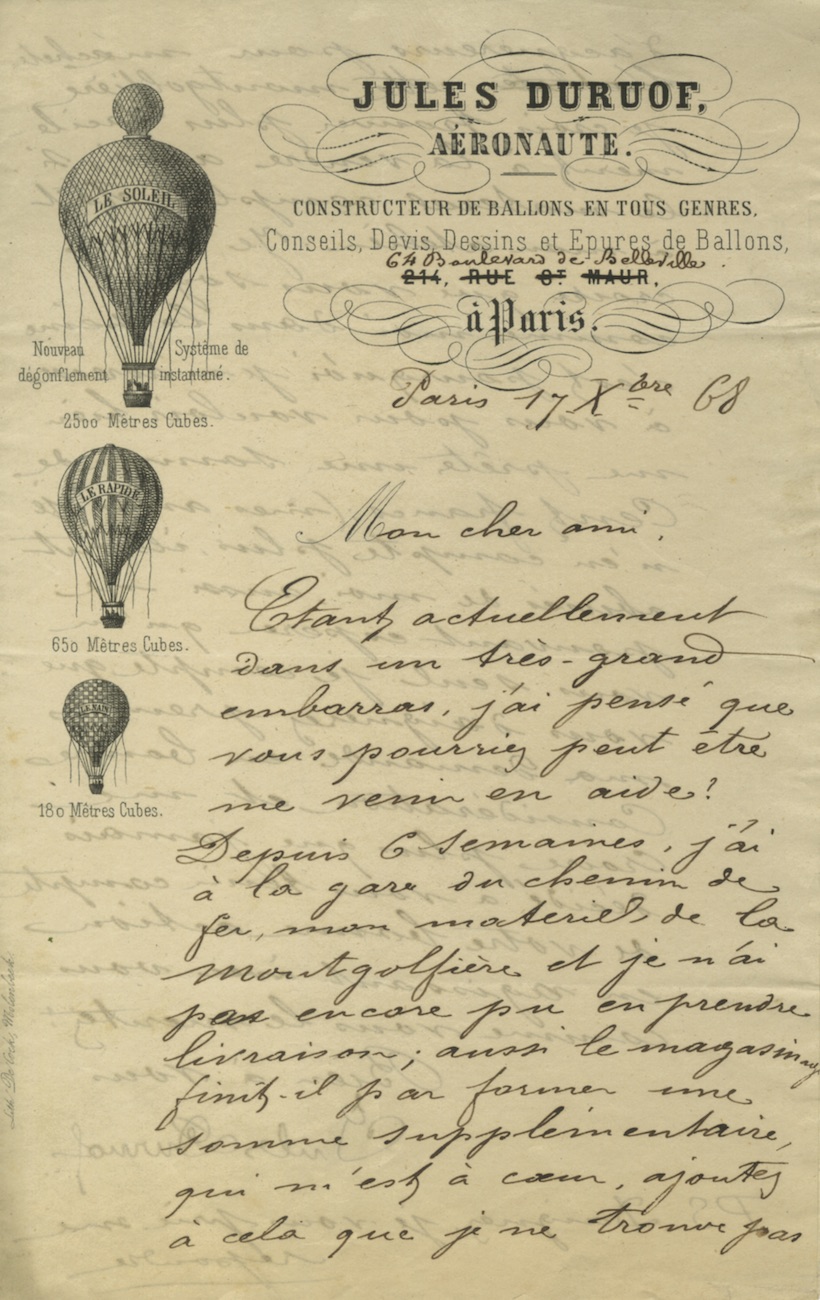 JULES DURUOF,
AÉRONAUTE.
CONSTRUCTEUR DE BALLONS EN TOUS GENRES,
Conseils, Devis, Dessins et Epures de Ballons,
64 Boulevard de Belleville.
214, RUE ST MAUR,
à Paris.
LE SOLEIL
Nouveau Système de
dégonflement instantané.
2500 Mêtres Cubes.
LE RAPIDE
650 Mêtres Cubes.
180 Mêtres Cubes.
Paris 17 Xbre 68
Mon cher ami,
Etant actuellement
dans un très-grand
embarras, j'ai pensé que
vous pourriez peut être
me venir en aide?
Depuis 6 semaines, j'ai
à la gare du chemin de
fer, mon materiel de la
Montgolfière et je n'ai
pas encore pu en prendre
livraison; aussi le magasinage
finit-il par former une
somme supplémentaire,
qui m'est à cœur, ajoutez
à cela que je ne trouve pas
Lith.